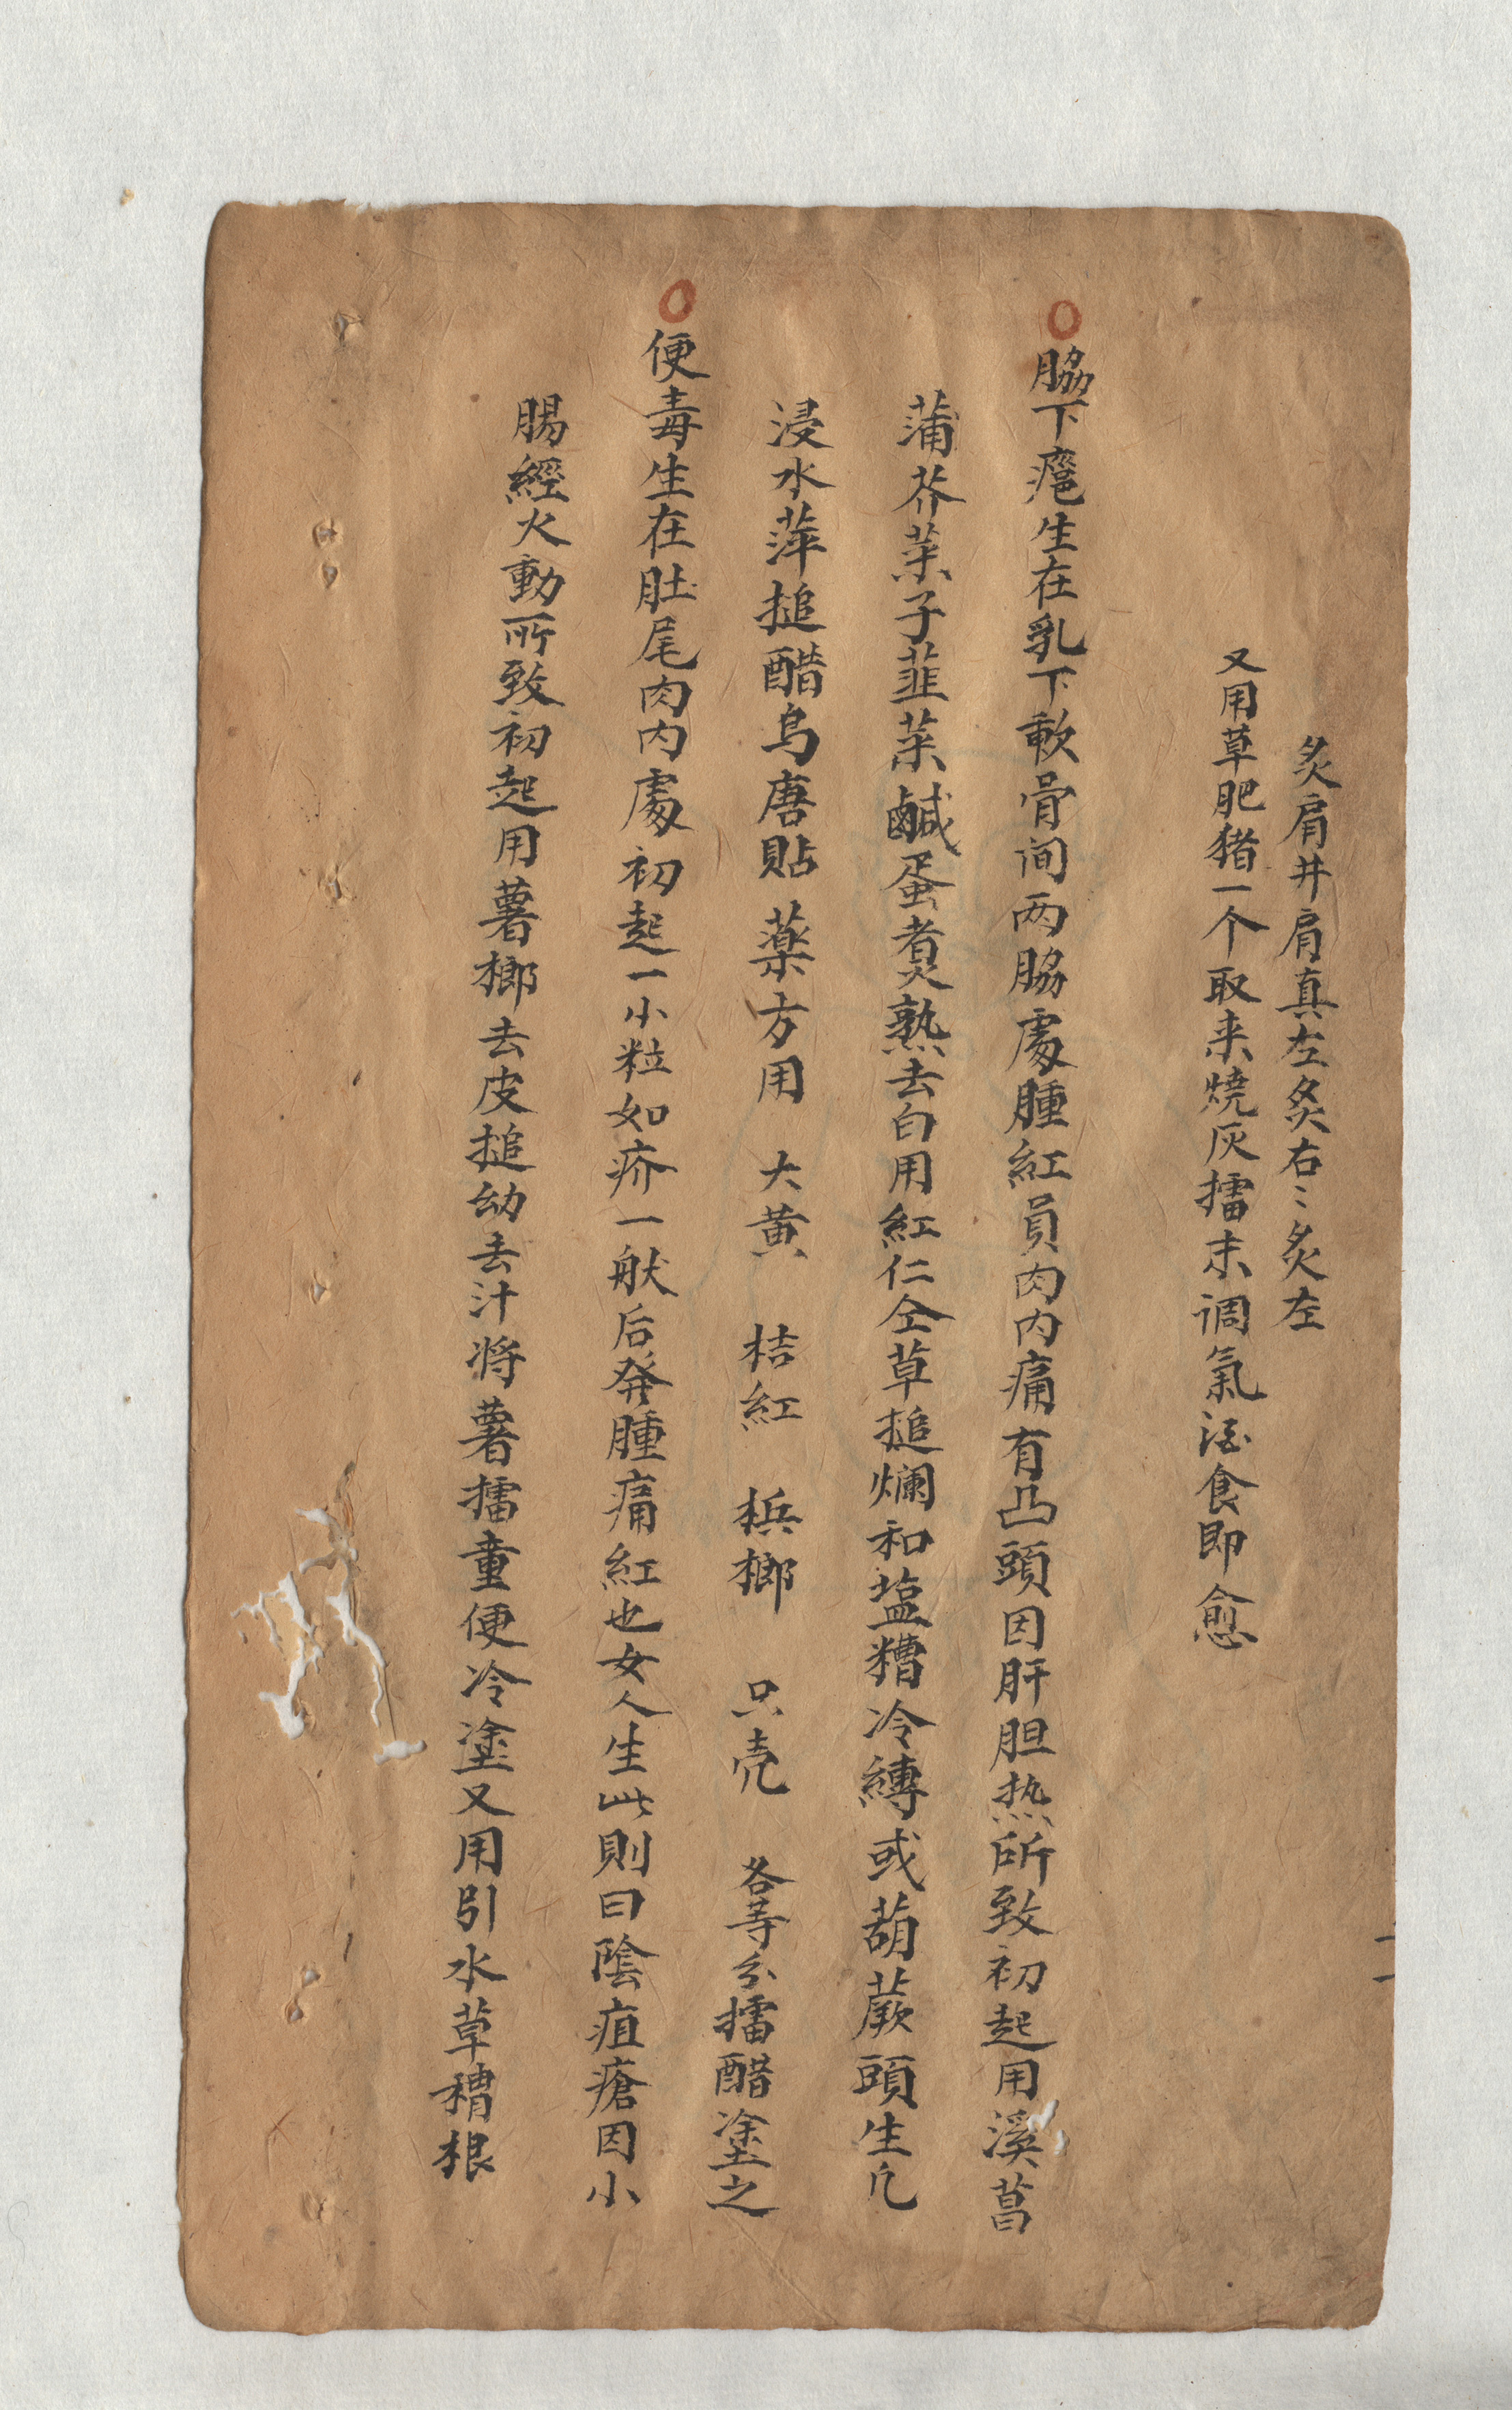 炙肩井肩真左炙右〻炙左
又用草肥猪一个取来燒灰擂末调氣酒食即愈
〇脇下癰生在乳下軟骨间两脇處腫紅員肉内痛有凸頭因肝胆热所致初起用溪菖
蒲芥菜子韮菜鹹蛋煮熟去白用紅仁仝草搥爛和塩糟冷縛或葫蕨頭生凢
浸水萍搥醋烏唐貼薬方用 大黄 桔紅 梹榔 只壳 各等分擂醋塗之
〇便毒生在肚尾肉内處初起一小粒如疥一般后発腫痛紅也女人生此則曰陰疽瘡因小
腸經火動所致初起用薯榔去皮搥幼去汁将薯擂童便冷塗又用引水草糟根